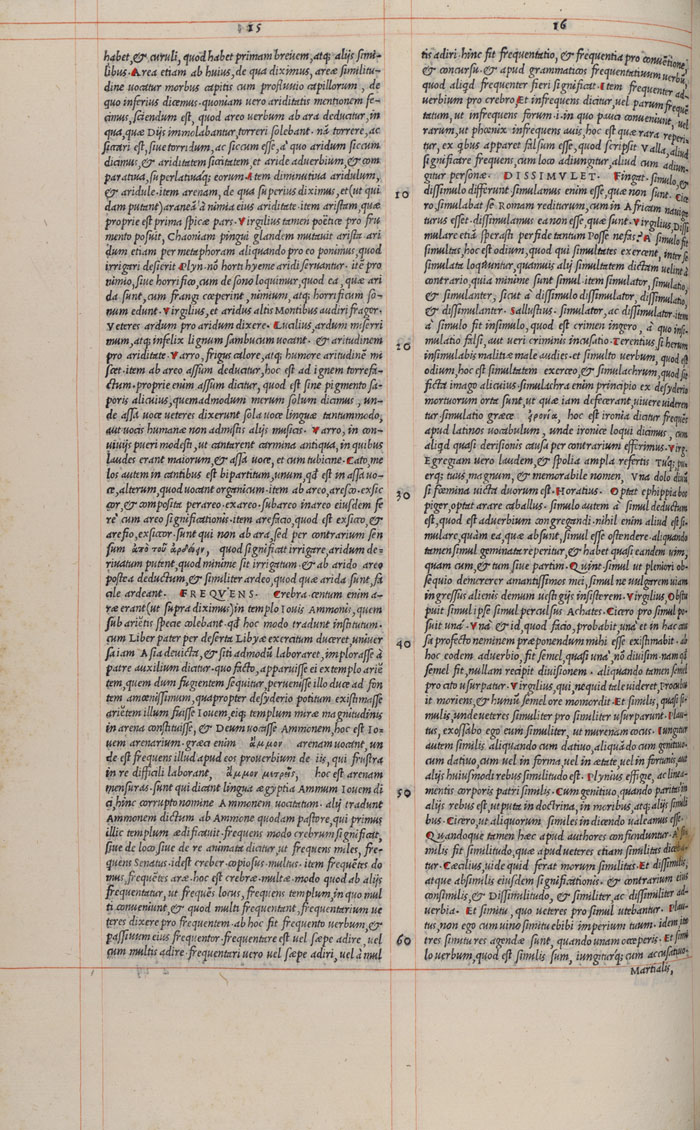 15
habet, & curuli, quod habet primam breuem, atq; alijs simi-
libus. Area etiam ab huius, de qua diximus, areæ similitu-
dine uocatur morbus capitis cum profluuio capillorum, de
quo inferius dicemus. quoniam uero ariditatis mentionem fe-
cimus, sciendum est, quod areo uerbum ab ara deducitur, in
qua, quæ Dijs immolabantur, torreri solebant. nã torrere, ac
siccari est, siue torridum, ac siccum esse, a' quo aridum siccum
dicimus, & ariditatem siccitatem, et aride aduerbium, & com
paratiua, superlatiuaq; eorum. Item diminutiua aridulum,
& aridule. item arenam, de qua superius diximus, et (ut qui
dam putant) araneã à nimia eius ariditate. item aristam, quæ
proprie est prima spicæ pars. Virgilius tamen poëtice pro fru
mento posuit, Chaoniam pingui glandem mutauit arista. ari
dum etiam per metaphoram aliquando pro eo ponimus, quod
irrigari desierit. Plyn. nõ horti hyeme aridi seruantur. itẽ pro
nimio, siue horrifico, cum de sono loquimur, quod ea, quæ ari
da sunt, cum frangi cœperint, nimium, atq; horrificum so-
num edunt. Virgilius, et aridus altis Montibus audiri fragor.
Veteres ardum pro aridum dixere. Lucilius, ardum miserri
mum, atq; infelix lignum sambucum uocant. & aritudinem
pro ariditate. Varro, frigus calore, atq; humore aritudinẽ mi
scet. item ab areo assum deducitur, hoc est ad ignem torrefa-
ctum. proprie enim assum dicitur, quod est sine pigmento sa-
poris alicuius, quemadmodum merum solum dicimus, un-
de assa uoce ueteres dixerunt sola uoce linguæ tantummodo,
aut uocis humanæ non admistis alijs musicis. Varro, in con-
uiuijs pueri modesti, ut cantarent carmina antiqua, in quibus
laudes erant maiorum, & assa uoce, et cum tubicine. Cato, me
los autem in cantibus est bipartitum, unum, qđ est in assa uo-
ce, alterum, quod uocant organicum. item ab areo, aresco. exsic
cor, & composita perareo. exareo. subareo inareo eiusdem fe
re' cum areo significationis. item arefacio, quod est exsicco, &
arefio, exsiccor. sunt qui non ab ara, sed per contrarium sen
sum ἀπὸ τοῦ ἀρδεύειν, quod significat irrigare, aridum de-
riuatum putent, quod minime sit irrigatum. & ab arido areo
postea deductum, & similiter ardeo, quod quæ arida sunt, fa
cile ardeant. FREQVENS. Crebra. centum enim a-
ræ erant (ut supra diximus) in templo Iouis Ammonis, quem
sub arietis specie colebant. qđ hoc modo tradunt institutum.
cum Liber pater per deserta Libyæ exercitum duceret, uniuer
sa iam Asia deuicta, & siti admodũ laboraret, implorasse à
patre auxilium dicitur. quo facto, apparuisse ei extemplo ariẽ
tem, quem dum fugientem sequitur, peruenisse illo duce ad fon
tem amœnissimum, quapropter desyderio potitum existimasse
arietem illum fuisse Iouem, eiq; templum miræ magnitudinis
in arena constituisse, & Deum uocasse Ammonem, hoc est Io-
uem arenarium. græci enim ἄμμον arenam uocant, un
de est frequens illud apud eos prouerbium de iis, qui frustra
in re difficili laborant, ἄμμον μετρεῖς, hoc est arenam
mensuras. sunt qui dicant lingua ægyptia Ammum Iouem di
ci, hinc corrupto nomine Ammonem uocitatum. alij tradunt
Ammonem dictum ab Ammone quodam pastore, qui primus
illic templum ædificauit. frequens modo crebrum significat,
siue de loco, siue de re animata dicitur, ut frequens miles, fre-
quens Senatus. idest creber. copiosus. multus. item frequẽtes do
mus, frequẽtes aræ. hoc est crebræ. multæ. modo quod ab alijs
frequentatur, ut frequẽs locus, frequens templum, in quo mul
ti conueniunt, & quod multi frequentant, frequentarium ue
teres dixere pro frequentem. ab hoc fit frequento uerbum, &
passiuum eius frequentor. frequentare est uel sæpe adire, uel
cum multis adire. frequentari uero uel sæpe adiri, uel à mul
16
tis adiri. hinc fit frequentatio, & frequentia pro conuẽtione,
& concursu. & apud grammaticos frequentatiuum uerbũ,
quod aliqd frequenter fieri significat. Item frequenter ad-
uerbium pro crebro. Et infrequens dicitur, uel parum freque
tatum, ut infrequens forum. i. in quo pauci conueniunt, uel
rarum, ut phœnix infrequens auis, hoc est quæ rara reperi-
tur, ex qbus apparet falsum esse, quod scripsit Valla, aliud
significare frequens, cum loco adiungitur, aliud cum adiun-
gitur personæ. DISSIMVLET. Fingat. simulo, &
10 dissimulo differunt. simulamus enim esse, quæ non sunt. Cice
ro, simulabat se Romam rediturum, cum in Africam nauiga
turus esset. dissimulamus ea non esse, quæ sunt. Virgilius, Dissi
mulare etiã sperasti perfide tantum Posse nefas? A simulo fit
simultas, hoc est odium, quod qui simultates exercent, inter se
simulate loquũtur, quamuis alij simultatem dictam uelint à
contrario, quia minime sunt simul. item simulator, simulatio,
& simulanter, sicut à dissimulo dissimulator, dissimulatio,
& dissimulanter. Sallustius. simulator, ac dissimulator. item
a' simulo fit insimulo, quod est crimen ingero, à quo insi-
20 mulatio falsi, aut ueri criminis incusatio. Terentius, si herum
insimulabis malitiæ male audies. et simulto uerbum, quod est
odium, hoc est simultatem exerceo, & simulachrum, quod sit
ficta imago alicuius. simulachra enim principio ex desyderio
mortuorum orta sunt, ut quæ iam defecerant, uiuere uideren
tur. simulatio græce εἰρωνία, hoc est ironia dicitur frequẽs
apud latinos uocabulum, unde ironice loqui dicimus, cum
aliqd quasi derisionis causa per contrarium efferimus. Virg.
Egregiam uero laudem, & spolia ampla refertis Tuq; pu-
erq; tuus magnum, & memorabile nomen, Vna dolo diuũ
30 si fœmina uicta duorum est. Horatius. Optat ephippia bos
piger, optat arare caballus. simulo autem à simul deductum
est, quod est aduerbium congregandi. nihil enim aliud est si-
mulare, quàm ea, quæ absunt, simul esse ostendere. aliquando
tamen simul geminatæ reperitur, & habet quasi eandem uim,
quam cum, & tum siue partim. Quint. simul ut pleniori ob-
sequio demererer amantissimos mei, simul ne uulgarem uiam
ingressus alienis demum uestigijs insisterem. Virgilius, Obstu
puit simul ipse simul perculsus Achates. Cicero pro simul po-
suit unà. Vnà & id, quod facio, probabit, unà et in hac cau
40 sa profecto neminem præponendum mihi esse existimabit. ab
hoc eodem aduerbio, fit semel, quasi unà, nõ diuisim. nam qđ
semel fit, nullam recipit diuisionem. aliquando tamen semel
pro cito usurpatur. Virgilius, qui, nequid tale uideret, Procubu
it moriens, & humũ semel ore momordit. Et similis, quasi si-
mulis, unde ueteres simuliter pro similiter usurparunt. Plau-
tus, exossabo ego eum simuliter, ut murenam cocus. Iungitur
autem similis aliquando cum datiuo, aliquãdo cum genitiuo.
cum datiuo, cum uel in forma, uel in ætate, uel in fortunis, aut
alijs huiusmodi rebus similitudo est. Plynius effigie, ac linea-
50 mentis corporis patri similis. Cum genitiuo, quando paritas in
alijs rebus est, ut puta in doctrina, in moribus atq; alijs simili
bus. Cicero, ut aliquorum similes in dicendo ualeamus esse.
Quandoque tamen hæc apud authores confunduntur. A si-
milis fit similitudo, quæ apud ueteres etiam similitas diceba-
tur. Cæcilius, uide quid ferat morum similitas. Et dissimilis,
atque absimilis eiusdem significationis. & contrarium eius
consimilis, & Dissimilitudo, & similiter, ac dissimiliter ad-
uerbia. Et simitu, quo ueteres pro simul utebantur. Plau-
tus, non ego cum uino simitu ebibi imperium tuum. idem ite
60 tres simitu res agendæ sunt, quando unam occeperis. Et simi
lo uerbum, quod est similis sum, iungiturq; cum accusatiuo.
Martialis,